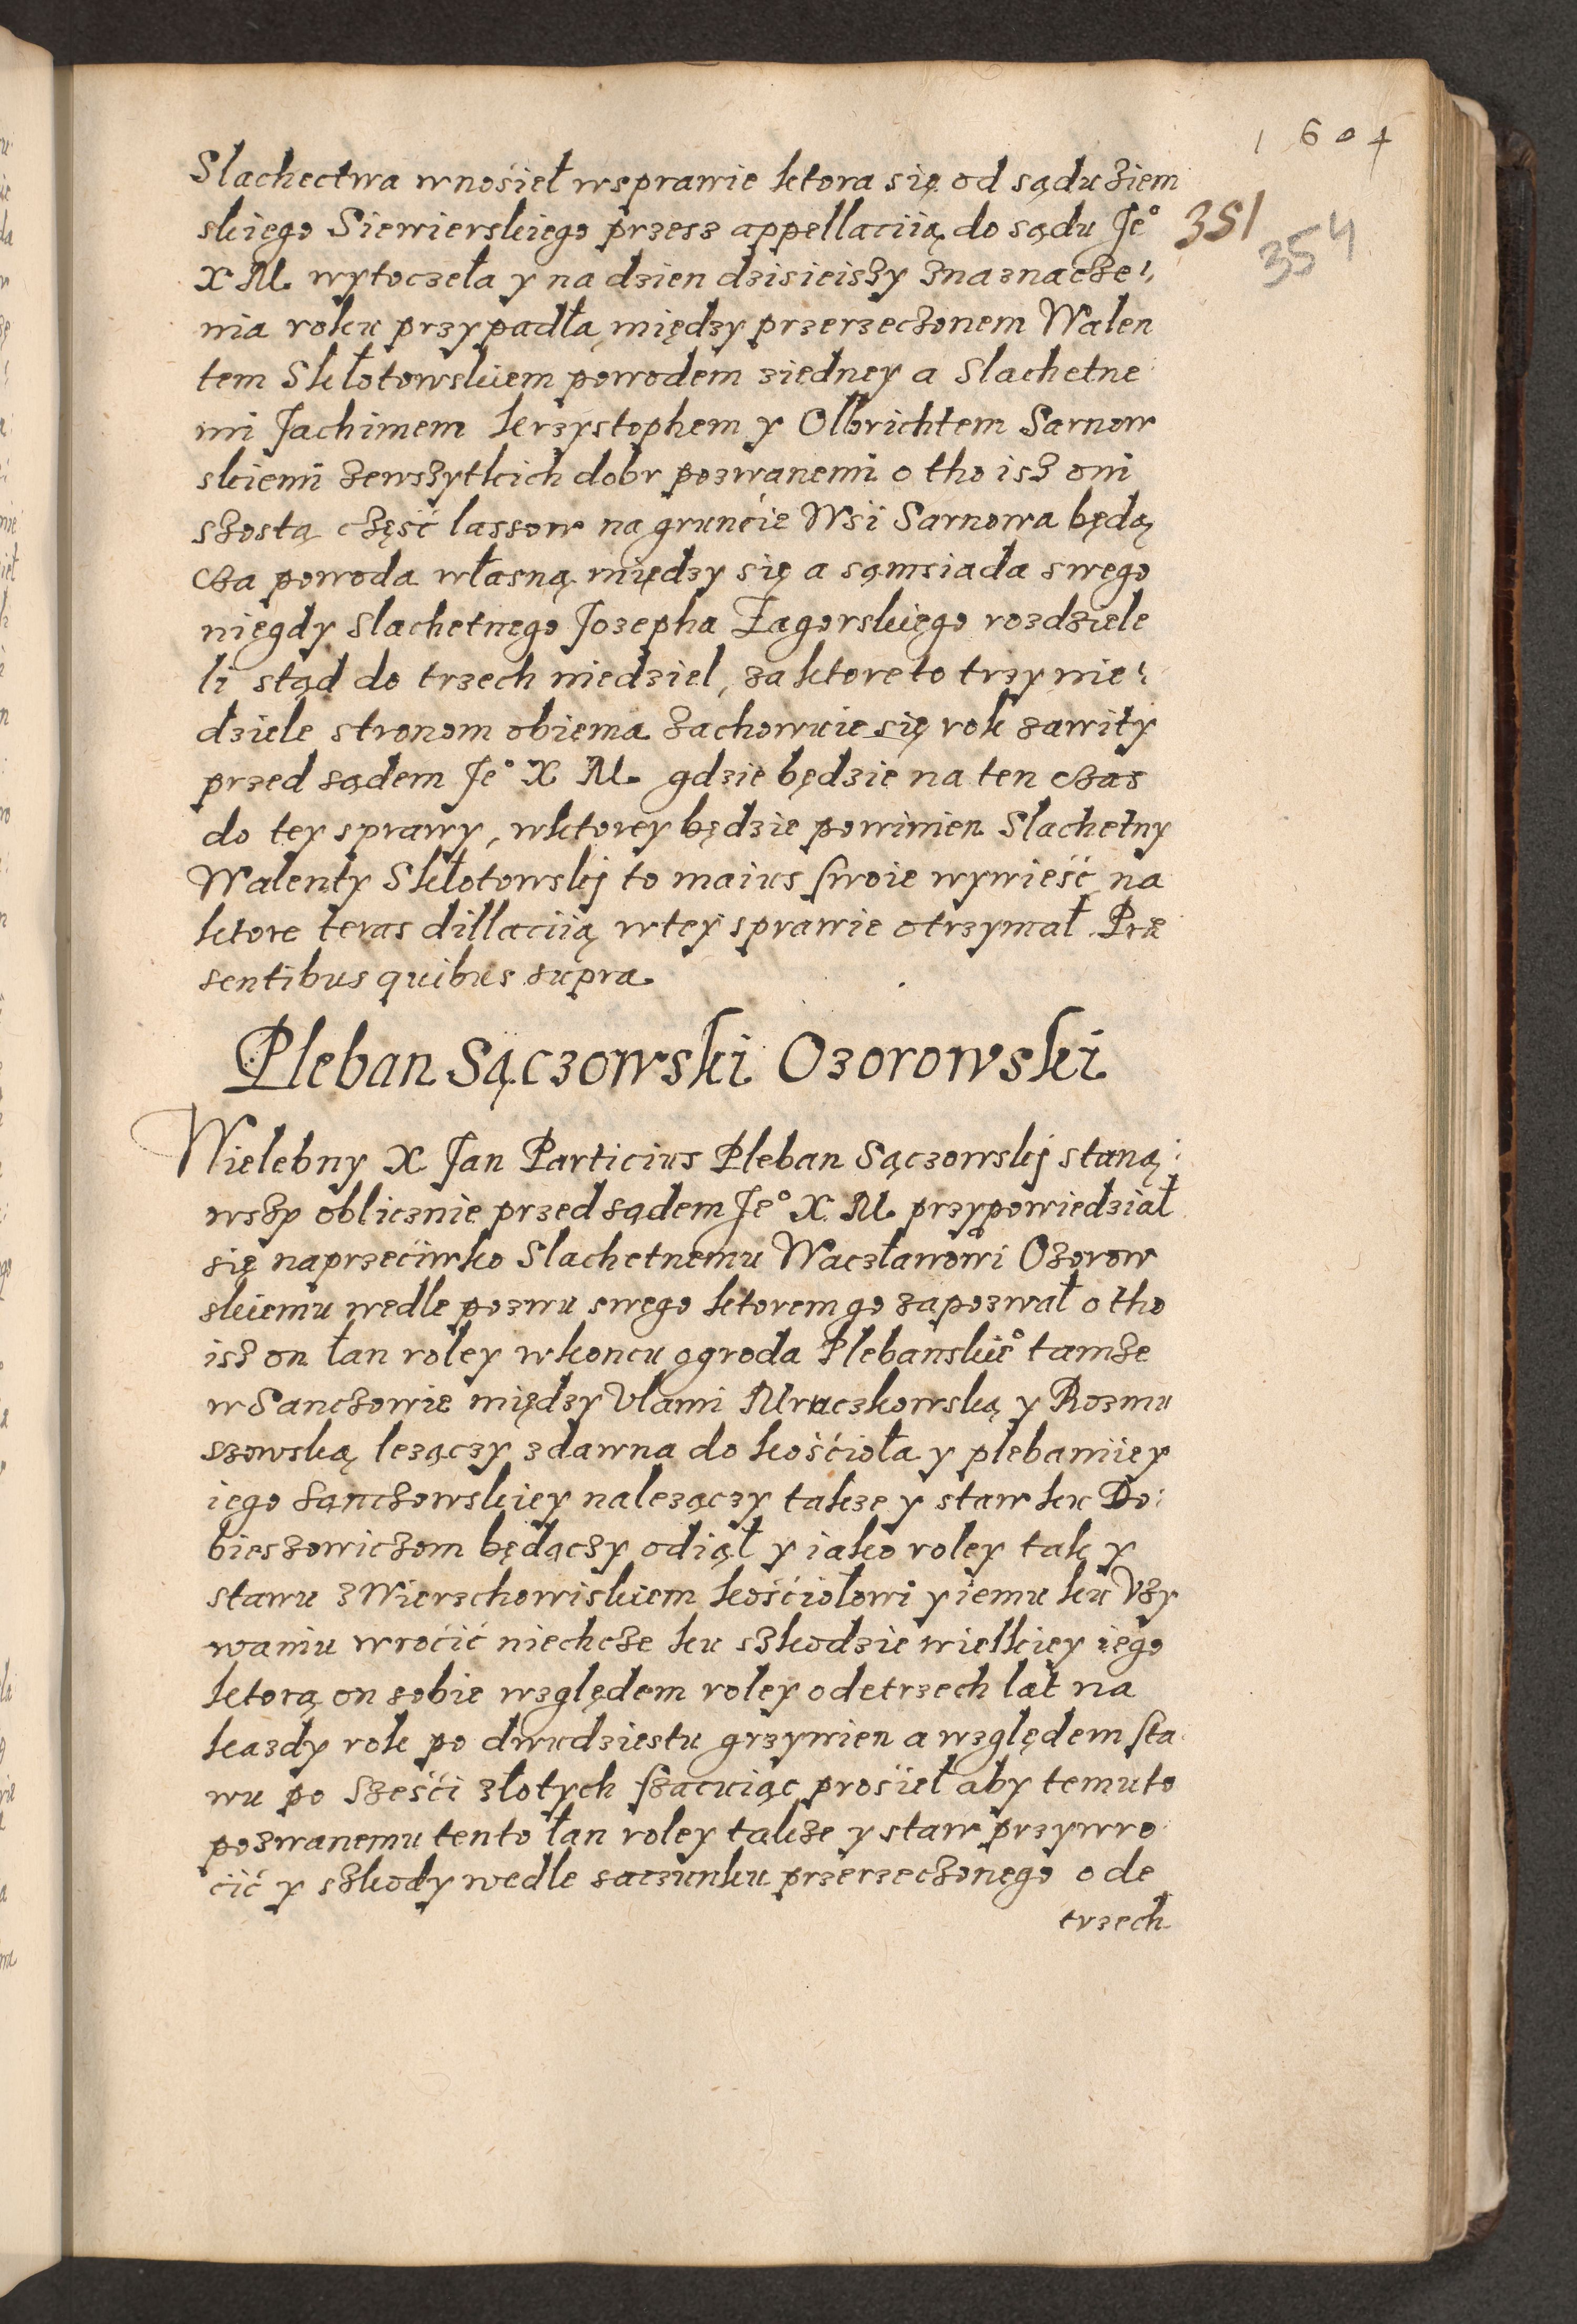 1604
Slachectwa wnosieł wsprawie ktora się od sądu ziem
skięgo Siewierskięgo przesz appellaciią do sądu Je°
351
354
X M. wytoczeła y na dzien dzisieiszy znaznacze⸗
nia roku przypadła, między przerzeczonem Walen
tem Skłotowskiem powodem ziedney a Slachetne
mi Jachimem Krzystophem y Olbrichtem Sarnow
skiemi zewszytkich dobr pozwanemi o tho isz oni
szostą część lassow na gruncie Wsi Sarnowa będą
cza powoda własną między się a sąmsiada swęgo
nięgdy Slachetnęgo Jozepha Zagorskięgo rozdziele
li stąd do trzech niedziel, za ktore to trzy nie⸗
dziele stronom obiema zachowuie się rok zawity
przed sądem Je° X M. gdzie będzie na ten czas
do tey sprawy, wktorey będzie powinien Slachetny
Walenty Skłotowskj to maius swoie wywieść na
ktore teras dillaciią wtey sprawie otrzymał. Præ
sentibus quibus supra.
Pleban Sączowski Ozorowski
Wielebny X Jan Particius Pleban Sączowskj staną⸗
wszy oblicznie przed sądem Je° X. M. przypowiedział
się naprzeciwko Slachetnemu Waczławowi Ozorow
skiemu wedle pozwu swego ktorem go zapozwał o tho
isz on łan roley wkoncu ogroda Plebanskie° tamze
w Sanczowie między Vlami Mruczkowską y Rozmu
szowską lezączy zdawna do kościoła y plebaniiey
iego Sanczowskiey nalezączy takze y staw ku Do⸗
bieszowiczom będączy odiął y iako roley tak y
stawu z Wierzchowiskiem kościołowi y iemu ku Vzy
waniu wrocić niechcze ku szkodzie wielkiey iego
ktorą on sobie względem roley odetrzech lat na
kazdy rok po dwudziestu grzywien a względem sta
wu po Sześci złotych szacuiąc prosieł aby temuto
pozwanemu tento łan roley takze y staw przywro
cić y szkody wedle saczunku przerzeczonego ode
trzech